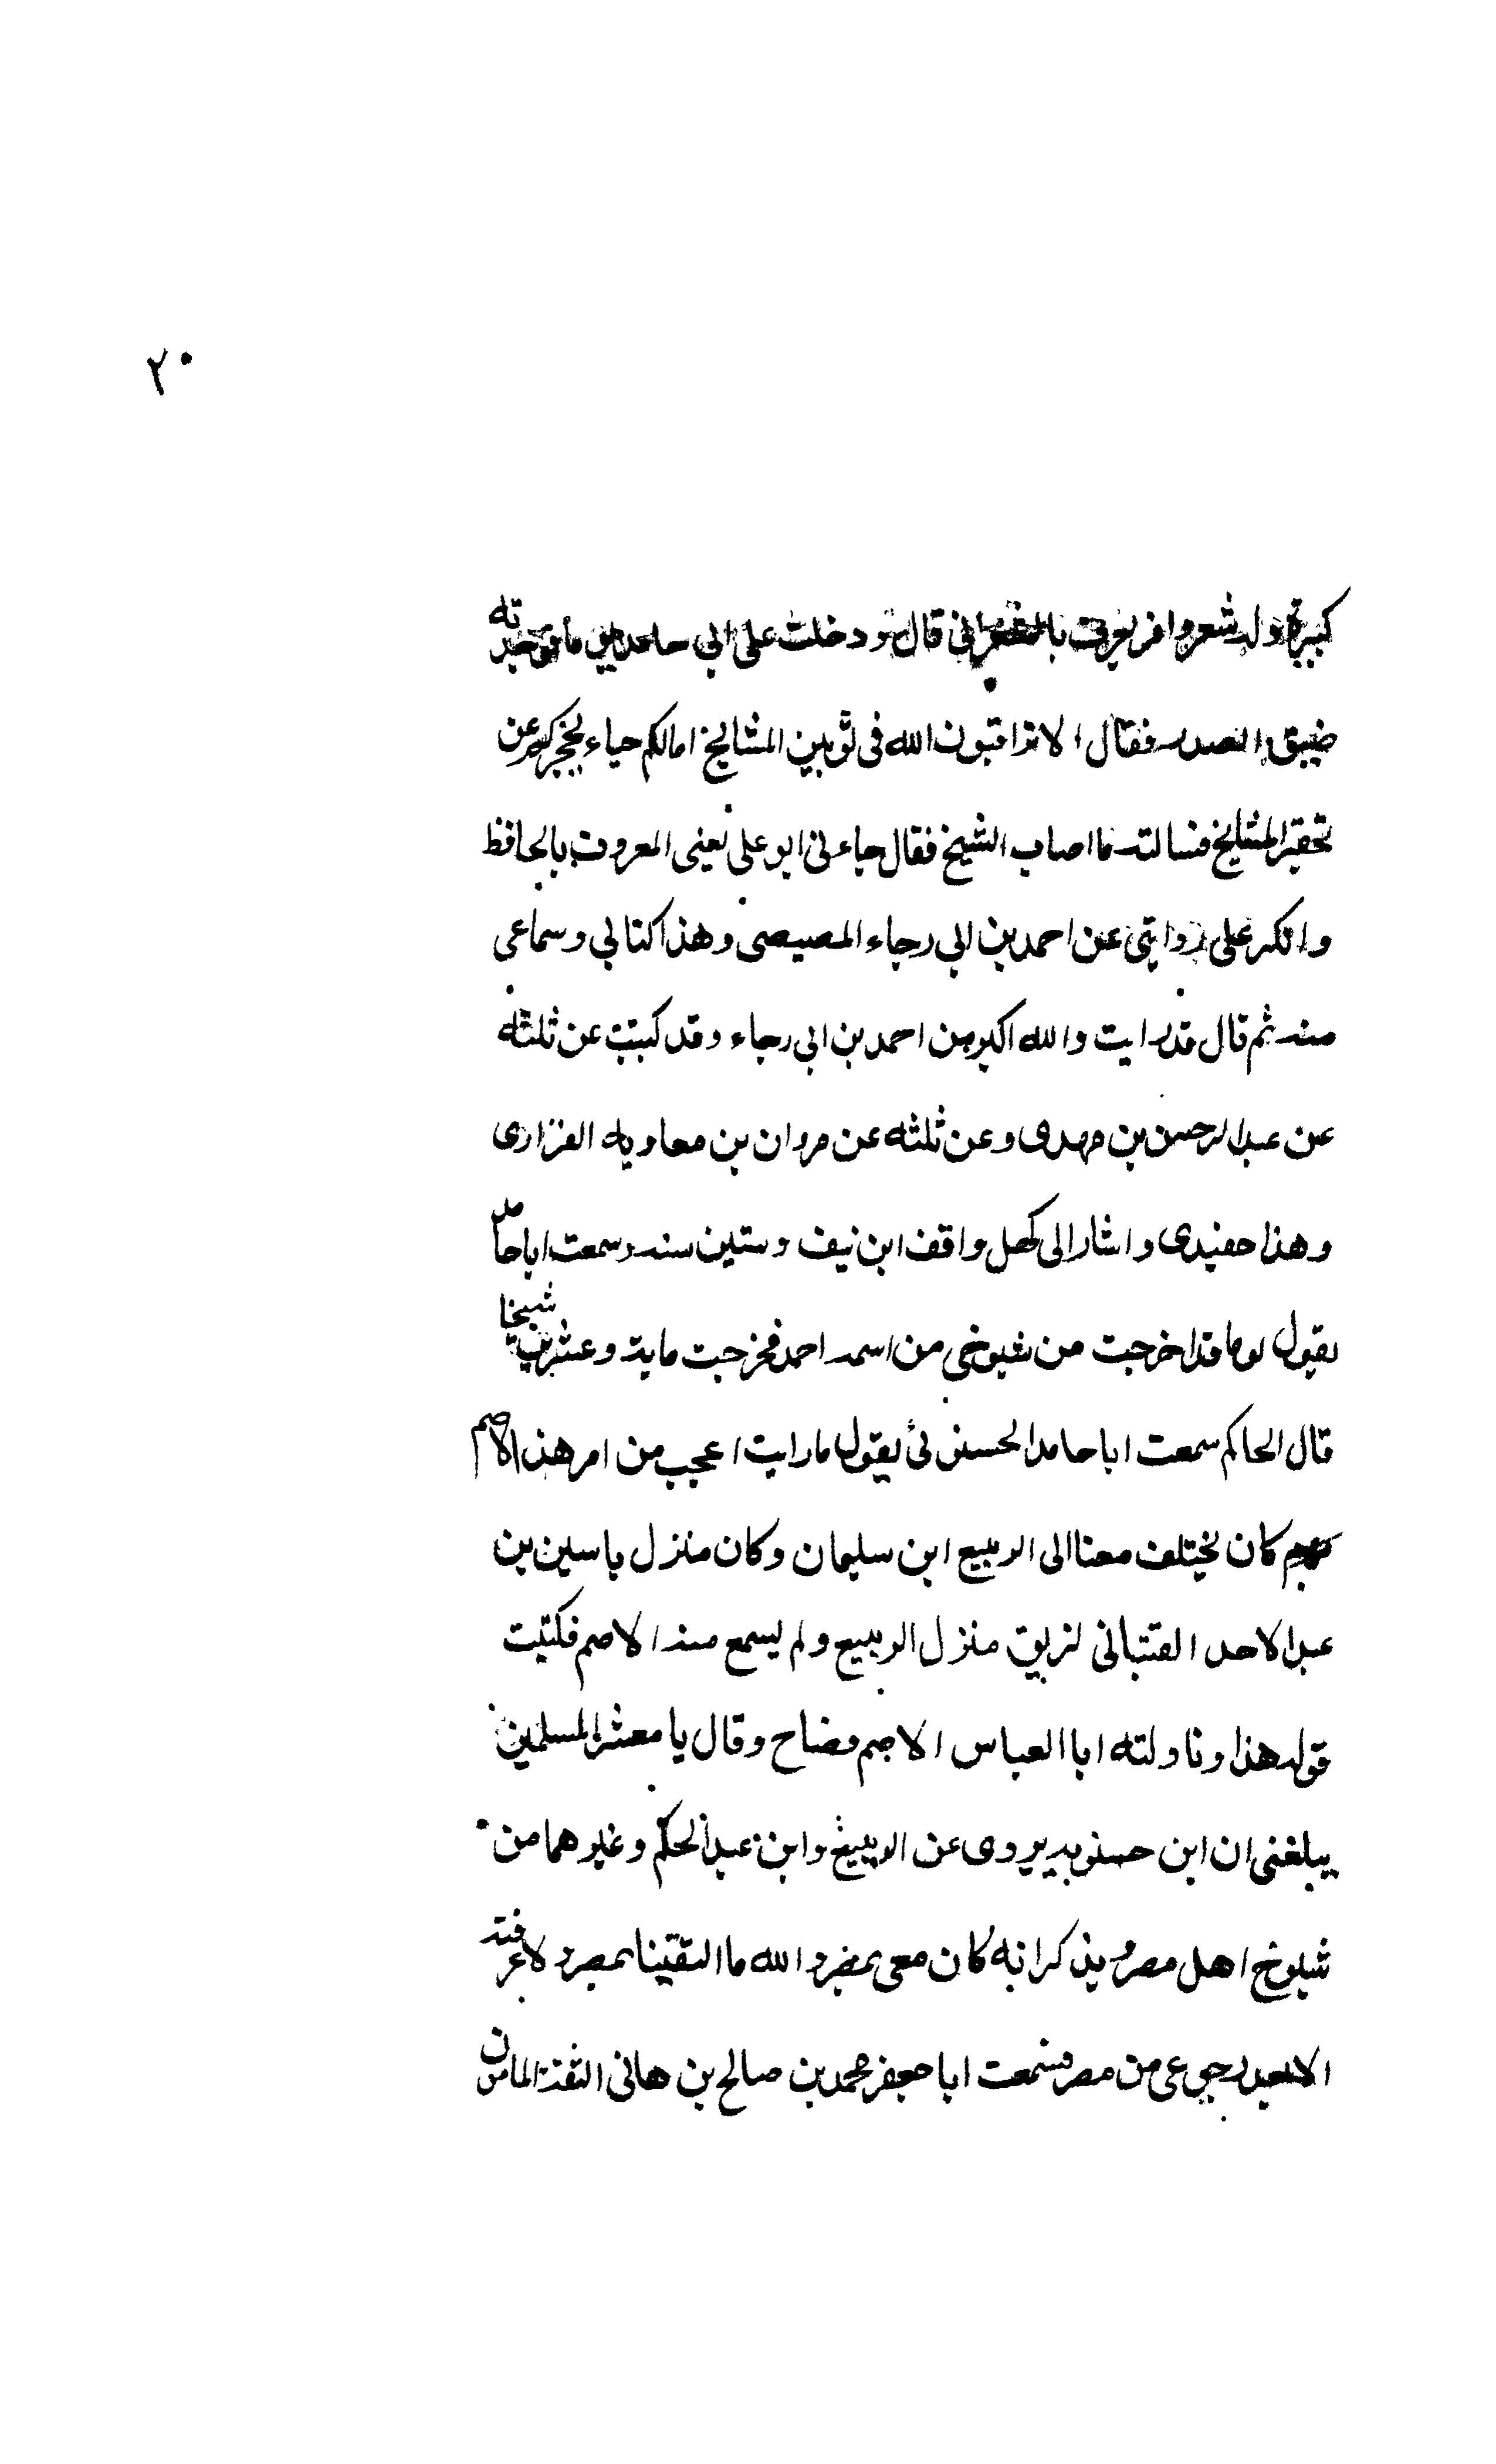 ٢٠
كبيرة وله شعر وافر يعرف بالشعراني قال و دخلت على ابي حامد يوما فوجدته
ضيق الصدر فقال الا تراقبون الله فى توهين المشايخ امالكم حياء يحجزكم عن
تحقير المشايخ فسالته ما اصاب الشيخ فقال جاءنى ابو على يعنى المعروف بالحافظ
وانكر على روايتى عن احمد بن ابي رجاء المصيصى وهذا كتابي وسماعى
منه ثم قال قد رايت والله اكبر من احمد بن ابي رجاء وقد كتبت عن ثلثة
عن عبد الرحمن بن مهدى وعن ثلثه عن مروان بن معاويه الفزارى
وهذا حفيدى واشار الى كهل واقف ابن نيف وستين سنه وسمعت ابا حامد
يقول يوما قد اخرجت من شيوخى من اسمه احمد فخرجت ماية وعشرين شيخا
قال الحاكم سمعت ابا حامد الحسنوئى يقول ما رايت اعجب من امر هذا الاصم
كان يختلف معنا الى الربيع ابن سليمان وكان منزل ياسين بن
عبد الاحد القتبانى لزيق منزل الربيع ولم يسمع منه الاصم فكتبت
قوله هذا وناولته ابا العباس الاصم فصاح وقال يا معشر المسلمين
يبلغنى ان ابن حسنويه يروى عن الربيع وابن عبد الحكم وغيرهما من
شيوخ اهل مصر ويذكر انه كان معى بمصر والله ما التقينا بمصر ولا عرفته
الا بعد رجوعى من مصر فسمعت ابا جعفر محمد بن صالح بن هانى الثقة المامون